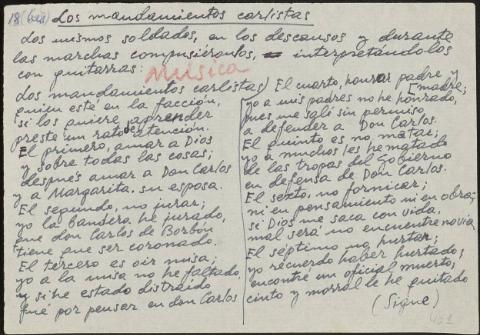 18 (bis) Los mandamientos carlistas
Los mismos soldados, en los descansos y durante
las marchas compusiéronlos, interpretándolos
con guitarras: Música
Los mandamientos carlistas)
quien esté en la facción,
si los quiere aprender
preste un rato atención.
El primero, amar a Dios
y sobre todas las cosas;
después amar a Don Carlos
y a Margarita su esposa.
El segundo, no jurar;
yo la bandera he jurado,
que don Carlos de Borbón
tiene que ser coronado.
El tercero es oir misa;
yo a la misa no he faltado,
y si he estado distraído
fué por pensar en don Carlos
El cuarto, honrar padre y
[madre;
yo a mis padres no he honrado,
pues me salí sin permiso
a defender a Don Carlos.
El quinto es no matar;
yo a muchos les he matado
de las tropas del Gobierno
en defensa de Don Carlos.
El sexto, no fornicar;
ni en pensamiento ni en obra;
si Dios me saca con vida,
mal será no encuentre novia.
El séptimo no hurtar;
yo recuerdo haber hurtado;
encontré un oficial muerto,
cinto y morral le he quitado
(Sigue)